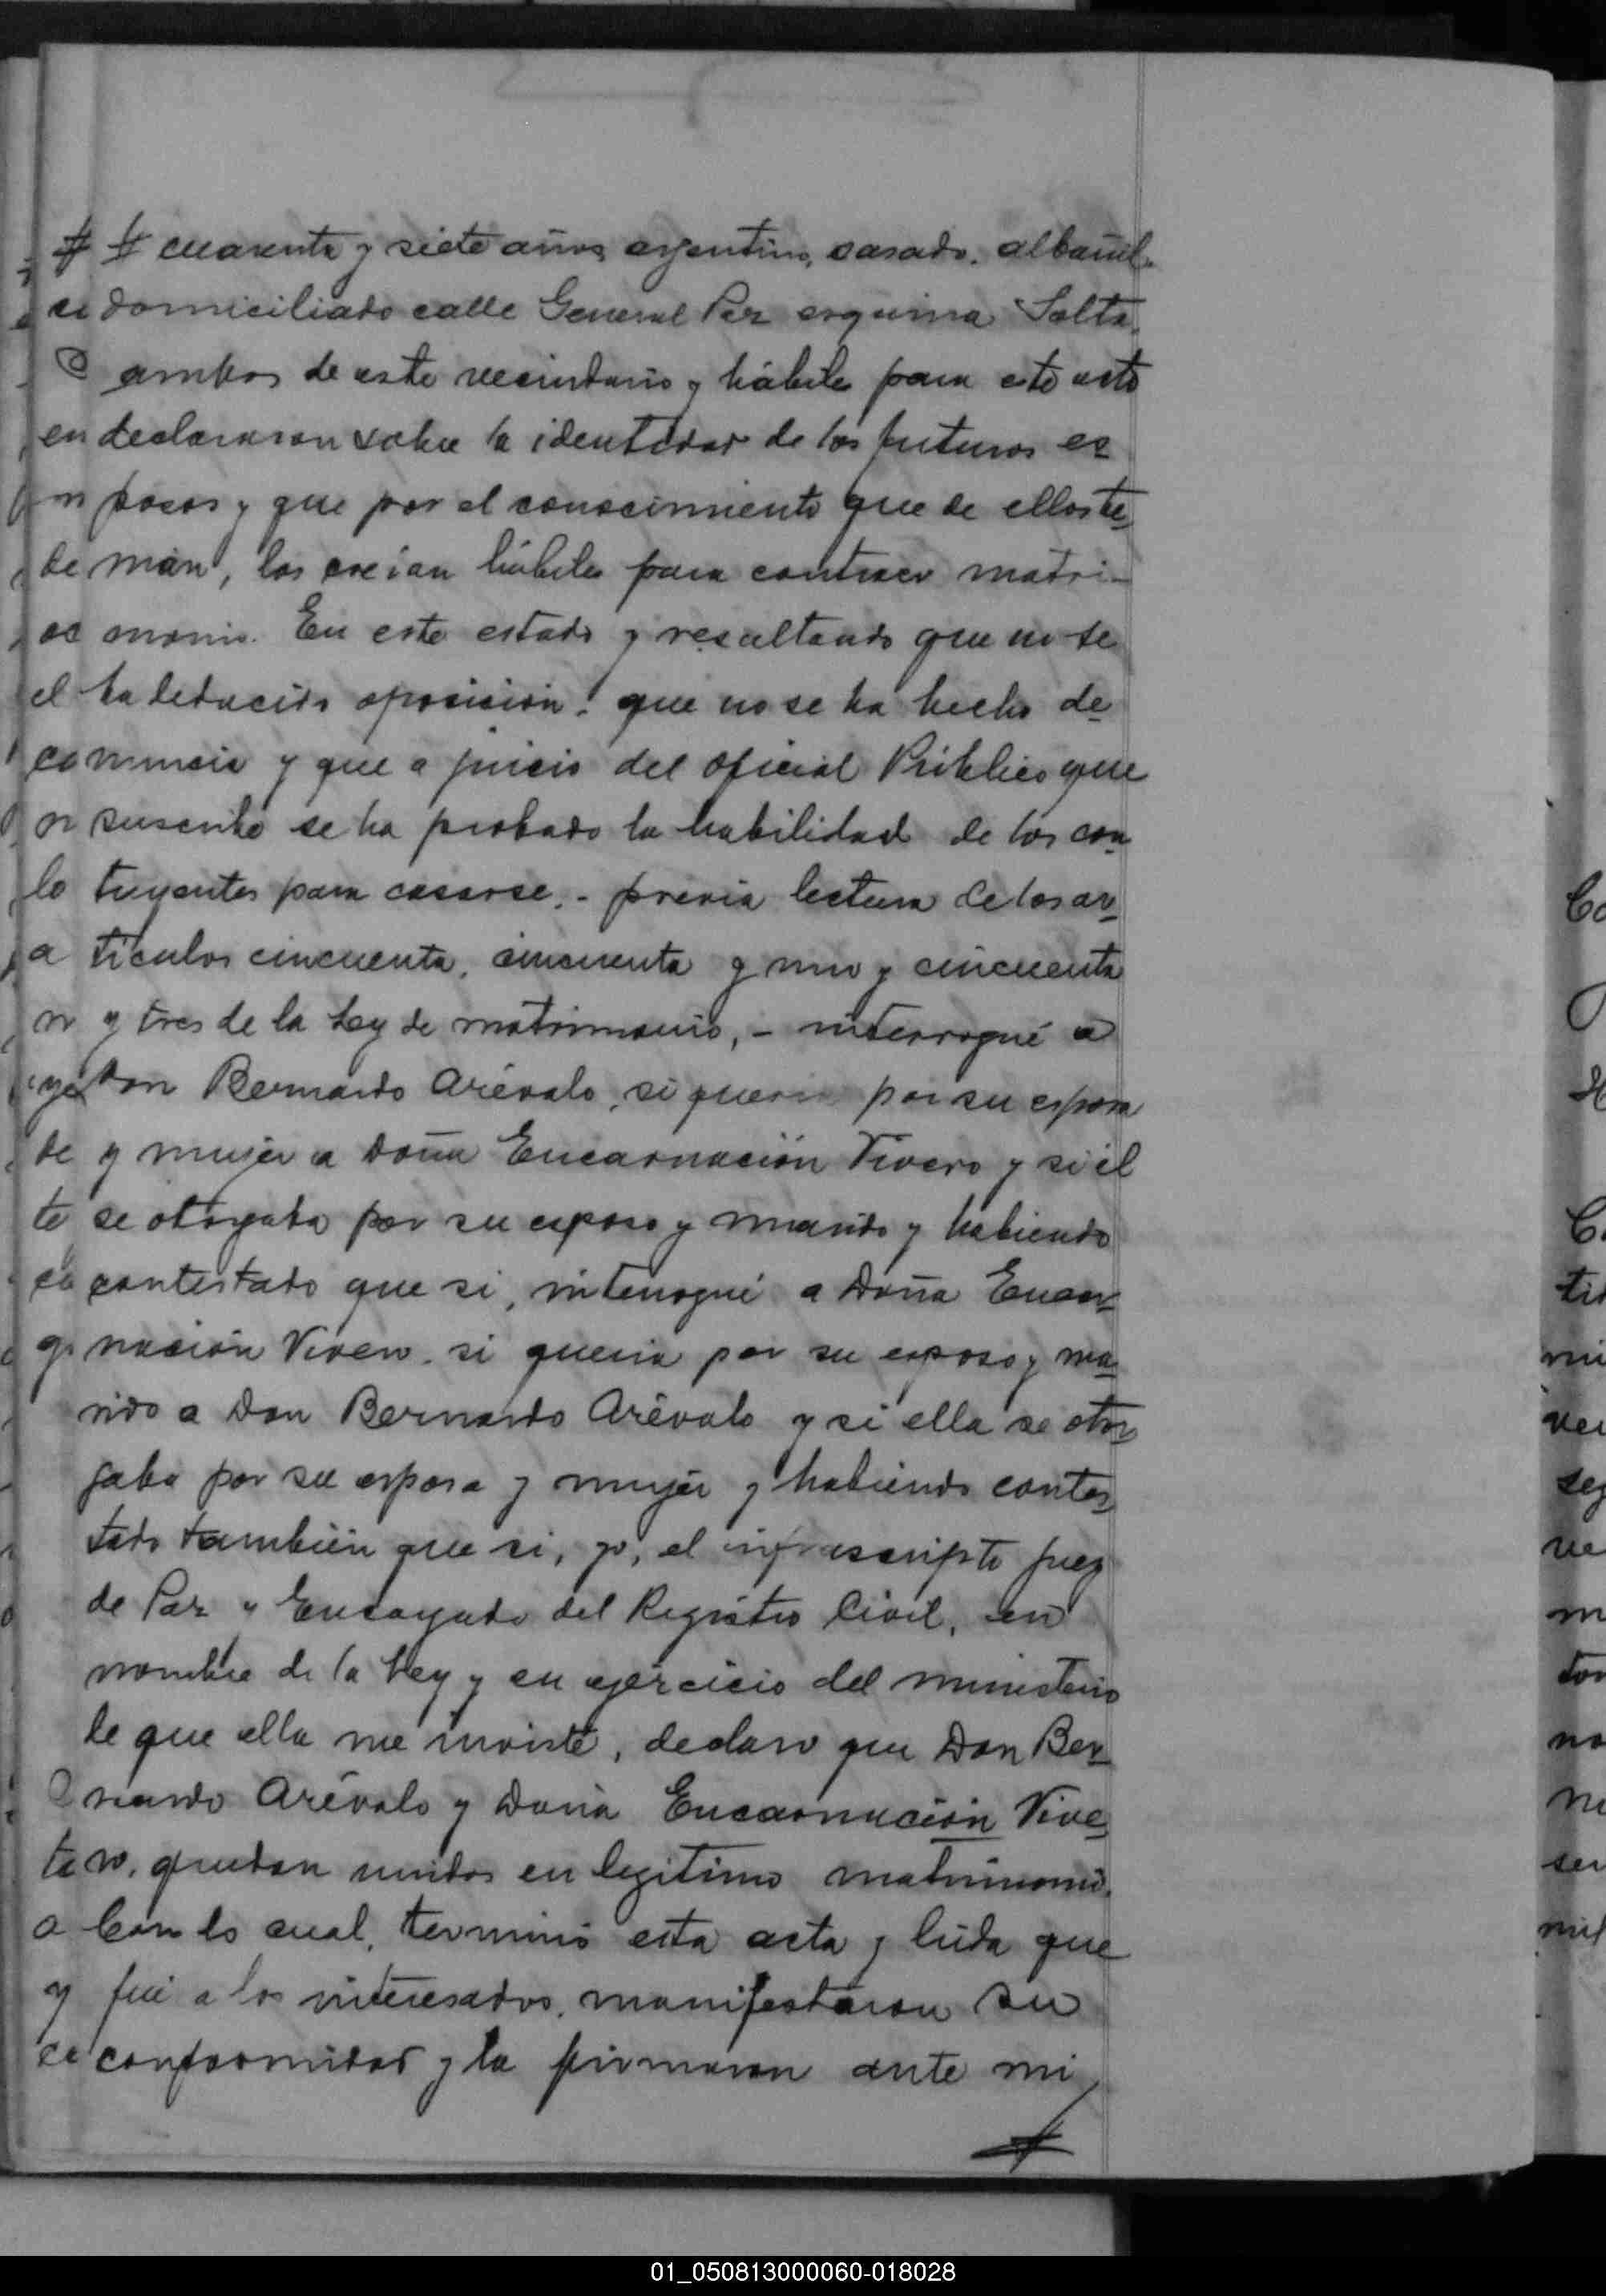 cuarenta y siete años, argentino, casado, albañil
domiciliado calle General Paz esquina Salta,
ambos de este vecindario y hábiles para este acto
declararon sobre la identidad de los futuros es
posos y que por el conocimiento que de ellos te
nian, los creian hábiles para contraer matri-
monio. En este estado y resultando que no se
ha deducido oposición, que no se ha hecho de
nuncia y que a juicio del Oficial Público que
suscribe se ha probado la habilidad de los con
trayentes para casarse, - previa lectura de los ar
tículos cincuenta, cincuenta y uno y cincuenta
y tres de la Ley de matrimonio, - interrogué a
Don Bernardo Arévalo, si queria por su esposa
y mujer a Doña Encarnación Vivero y si él
se otorgaba por su esposo y marido y habiendo
contestado que si, interrogué a Doña Encar
nación Vivero, si queria por su esposo y ma
rido a Don Bernardo Arévalo y si ella se otor
gaba por su esposa y mujer y habiendo contes
tado también que si, yo, el infrascripto Juez
de Paz y Encargado del Registro Civil, en
nombre de la Ley y en ejercicio del ministerio
de que ella me inviste, declaro que Don Ber
nardo Arévalo y Doña Encarnación Vive
ro, quedan unidos en legitimo matrimonio.
Con lo cual, terminó esta acta y leida que
fué a los interesados, manifestaron su
conformidad y la firmaron ante mi
01_050813000060-018028